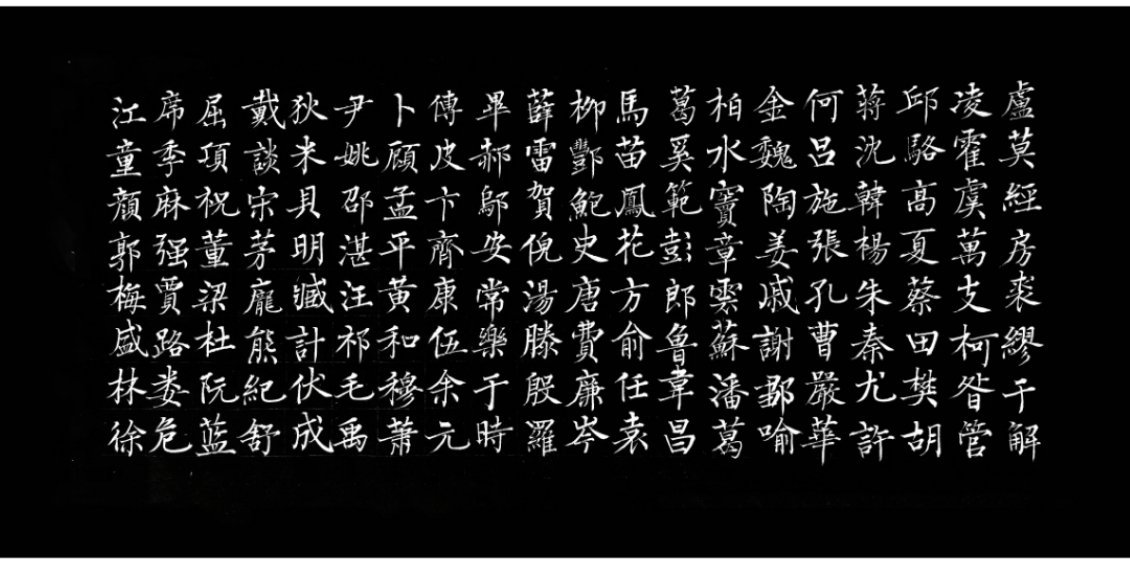 盧莫經房裘繆干解
凌霍虞萬支柯昝管
邱駱高夏蔡田樊胡
蔣沈韓楊朱秦尤許
何呂施張孔曹嚴華
金魏陶姜戚謝鄒喻
柏水竇章雲蘇潘葛
葛奚範彭郎魯韋昌
馬苗鳳花方俞任袁
柳酆鮑史唐費廉岑
薛雷賀倪湯滕殷羅
畢郝鄔安常樂于時
傅皮卞齊康伍余元
卜顧孟平黃和穆蕭
尹姚邵湛汪祁毛禹
狄米貝明臧計伏成
戴談宋茅龐熊紀舒
屈項祝董梁杜阮蓝
席季麻强賈路娄危
江童顏郭梅盛林徐